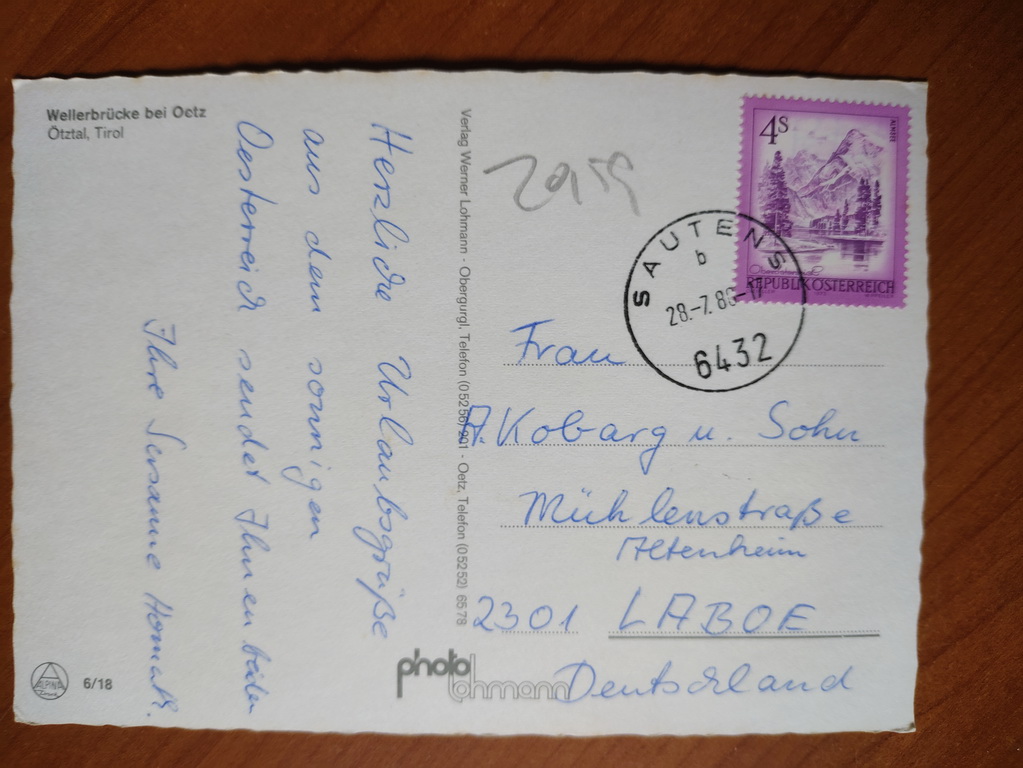 Wellerbrücke bei Oetz
Ötztal, Tirol
Herzliche Urlaubsgrüße
aus dem sonnigen
Oesterreich sendet Ihnen beiden
Ihre Susanne
Verlag Werner Lohmann - Obergurgl, Telefon (05256) 201 - Oetz, Telefon (05252) 6578
4S
ALMSEE
REPUBLIK ÖSTERREICH
SAUTENS
b
28.-7.86-17
6432
Frau
A. Kobarg u. Sohn
Mühlenstraße
Altenheim
2301 LABOE
Deutschland
photo
lohmann
ALPINA
6/18